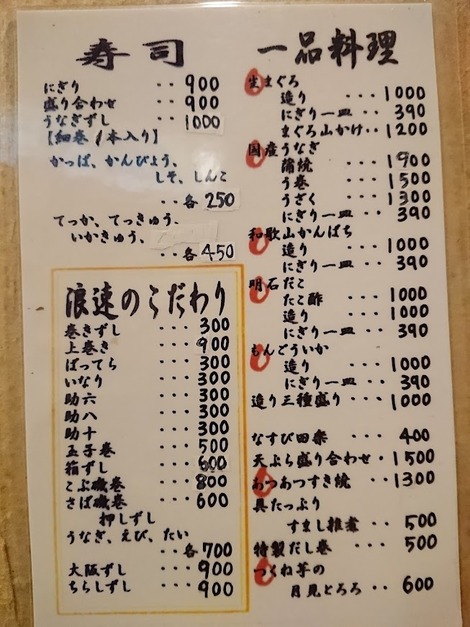 寿司
にぎり ‥900
盛り合わせ ‥900
うなぎずし ‥1000
【細巻1本入り】
かっぱ、かんぴょう、
しそ、しんこ
‥各250
てっか、てっきゅう、
いかきゅう、
‥各450
浪速のこだわり
巻きずし …300
上巻き …900
ばってら …300
いなり …300
助六 …300
助八 …300
助十 …300
玉子巻 …500
箱ずし …600
こぶ磯巻 …800
さば磯巻 …600
押しずし
うなぎ、えび、たい
…各700
大阪ずし …900
ちらしずし …900
一品料理
生まぐろ
造り …1000
にぎり一皿 ‥390
まぐろ山かけ‥1200
国産うなぎ
蒲焼 …1900
う巻 …1500
うざく …1300
にぎり一皿 ‥390
和歌山かんぱち
造り …1000
にぎり一皿 ‥390
明石だこ
たこ酢 …1000
造り …1000
にぎり一皿 ‥390
もんごういか
造り …1000
にぎり一皿 ‥390
造り三種盛り ‥1000
なすび田楽 …400
天ぷら盛り合わせ・1500
あつあつすき焼 …1300
具たっぷり
すまし椎煮 ‥500
特製だし巻 …500
つくね芋の
月見とろろ ‥600